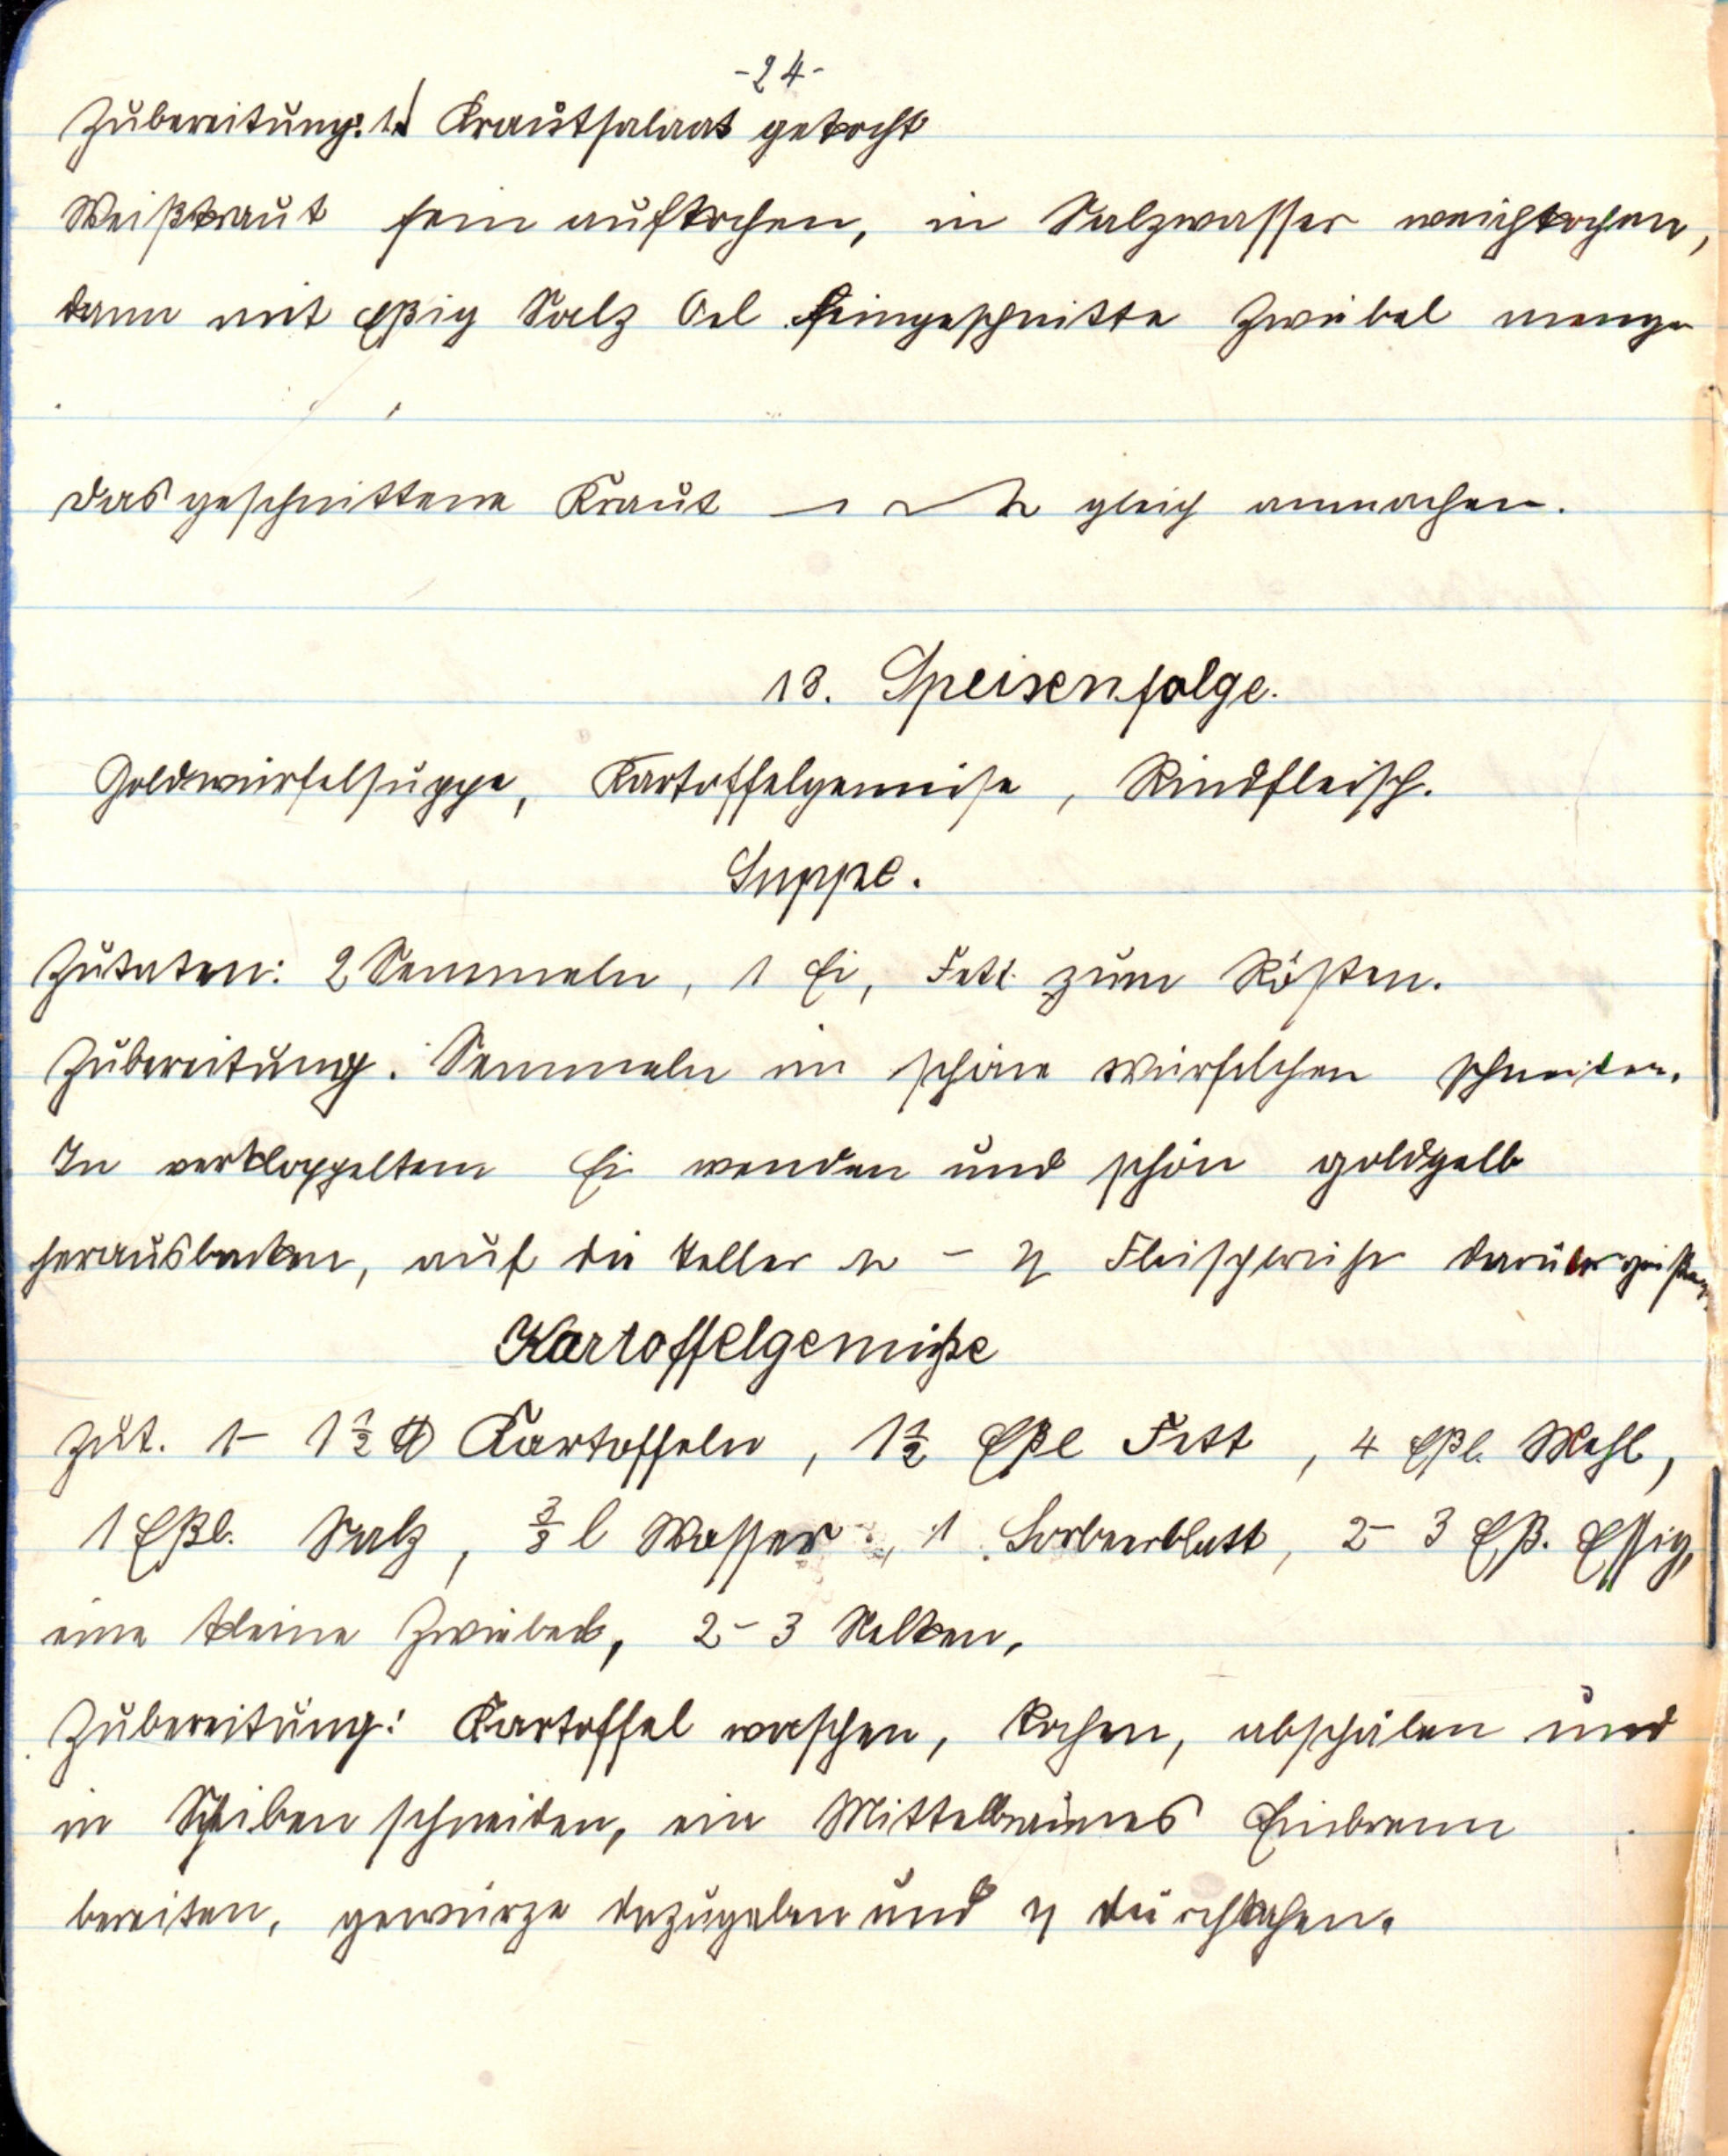 -24-
Zubereitung: 1.) Krautsalaat gekocht
Weißkraut fein aufkochen, in Salzwasser weichkochen,
dann mit Eßig Salz Oel feingeschnitte Zwiebel menge
das geschnittene Kraut gleich anmachen.
18. Speisenfolge.
Goldwürfelsuppe, Kartoffelgemüse, Rindfleisch.
Suppe.
Zutaten: 2 Semmeln, 1 Ei, Fett zum Rösten.
Zubereitung. Semmeln in schöne Würfelchen schneiden.
In verkloppeltem Ei wenden und schön goldgelb
herausbacken, auf die Teller Fleischbrühe darübergießen.
Kartoffelgemüße
Zut. 1- 1½ ℔ Kartoffeln, 1½ Eßl Fett, 4 Eßl. Mehl,
1 Eßl. Salz, ¾ l Wasser, 1 Lorbeerblatt, 2- 3 Eß. Essig,
eine kleine Zwiebel, 2- 3 Nelken,
Zubereitung: Kartoffel waschen, kochen, abschälen und
in Scheiben schneiden, ein Mittelbraunes Einbrenn
bereiten, gewürze dazugeben und durchkochen.